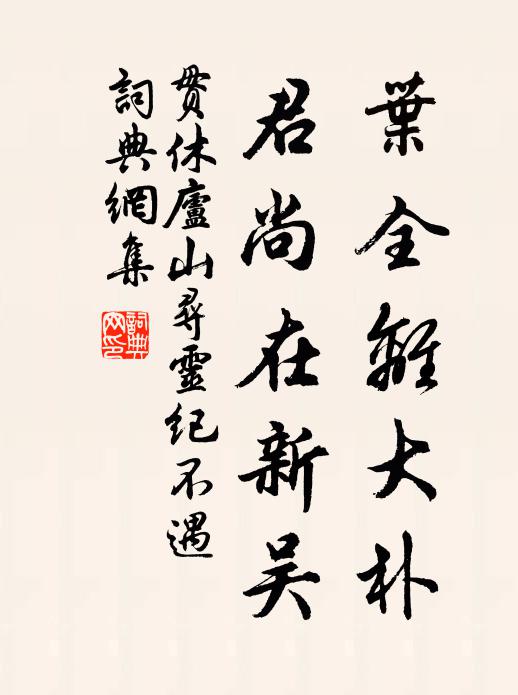 葉全離大朴
君尚在新吴
貫休廬山尋靈纪不遇
詞典網集
詞典网印